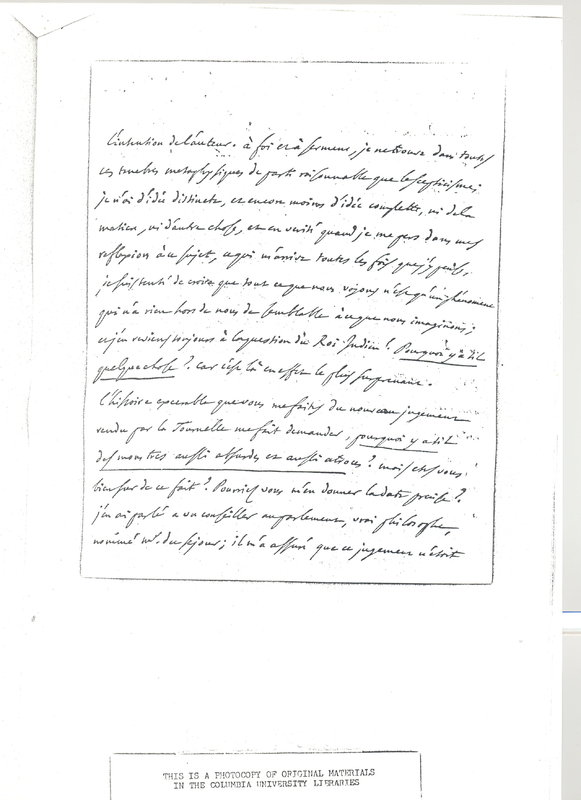 l'intention de l'auteur. à foi et à serment, je ne trouve dans toutes
ces tenebres metaphysiques de parti raisonnable que le scepticisme;
je n'ai d'idée distincte, et encore moins d'idée complette, ni de la
matiere, ni d'autre chose, et en verité quand je me pers dans mes
reflexions à ce sujet, ce qui m'arrive toutes les fois que j'y pense,
je suis tenté de croire que tout ce que nous voyons n'est qu'un phénomene
qui n'a rien hors de nous de semblable à ce que nous imaginons;
et j'en reviens toujours à la question du Roi Indien: Pourquoi y a t'il
quelque chose? car c'est là en effet le plus surprenant.
l'histoire execrable que vous me faites du nouveau jugement
rendu par la Tournelle me fait demander, pourquoi y a t'il
des monstres aussi absurdes et aussi atroces? mais etes vous
bien sur de ce fait? Pourriez vous m'en donner la date precise?
j'en ai parlé a un conseiller au parlement, vrai philosophe,
nommé Mr. du sejour; il m'a assuré que ce jugement n'étoit
THIS IS A PHOTOCOPY OF ORIGINAL MATERIALS
IN THE COLUMBIA UNIVERSITY LIBRARIES